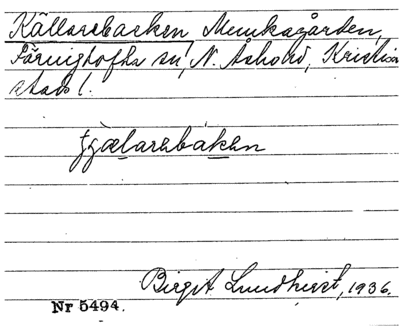 Källarebacken, Munkagården,
Färingtofta sn, N. Åsbo hd, Kristian
stads l.
tjɑ̀ælarebakən
Birgit Lundqvist, 1936.
Nr 5494.